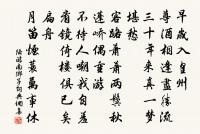 早歲入皇州
尊酒相逢盡勝流
三十年來真一夢
堪愁
客路蕭蕭兩鬢秋
蓬嶠偶重游
不待人嘲我自羞
看鏡倚樓俱已矣
扁舟
月笛煙蓑萬事休
陸游南鄉子